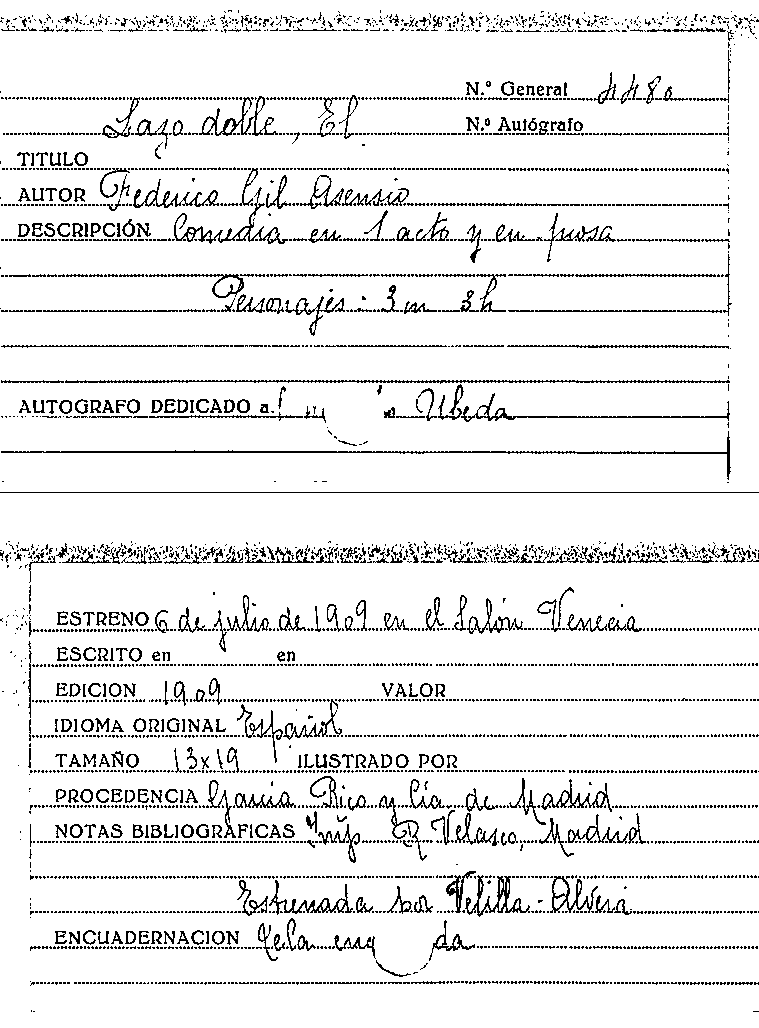 N.º General 4480
Lazo doble, El
N.º Autógrafo
TITULO
AUTOR Federico Gil Asensio
DESCRIPCIÓN Comedia en 1 acto y en prosa
Personajes: 3m 3h
AUTOGRAFO DEDICADO a. Ubeda
ESTRENO 6 de julio de 1909 en el Salón Venecia
ESCRITO en en
EDICION 1909 VALOR
IDIOMA ORIGINAL Español
TAMAÑO 13x19 ILUSTRADO POR
PROCEDENCIA Garcia Rico y Cía. de Madrid
NOTAS BIBLIOGRAFICAS Imp. R Velasco, Madrid
Estrenada por Velilla-Alverá
ENCUADERNACION Tela